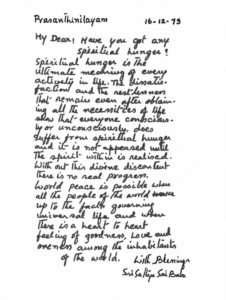 Prasanthinilayam 16-12-73
My Dear! Have you got any
spiritual hunger?
Spiritual hunger is the
ultimate meaning of every
activity in life. The dissatis-
faction and the restlessness
that remain even after obtain-
ing all the necessities of life
show that everyone conscious-
ly or unconsciously, does
suffer from spiritual hunger
and it is not appeased until
the spirit within is realised.
With out this divine discontent
there is no real progress.
World peace is possible when
all the people of the world
up to the facts governing
universal life and when
there is a heart to heart
feeling of goodness, Love and
oneness among the inhabitants
of the world.
With Blessings
Sri Sathya Sai Baba